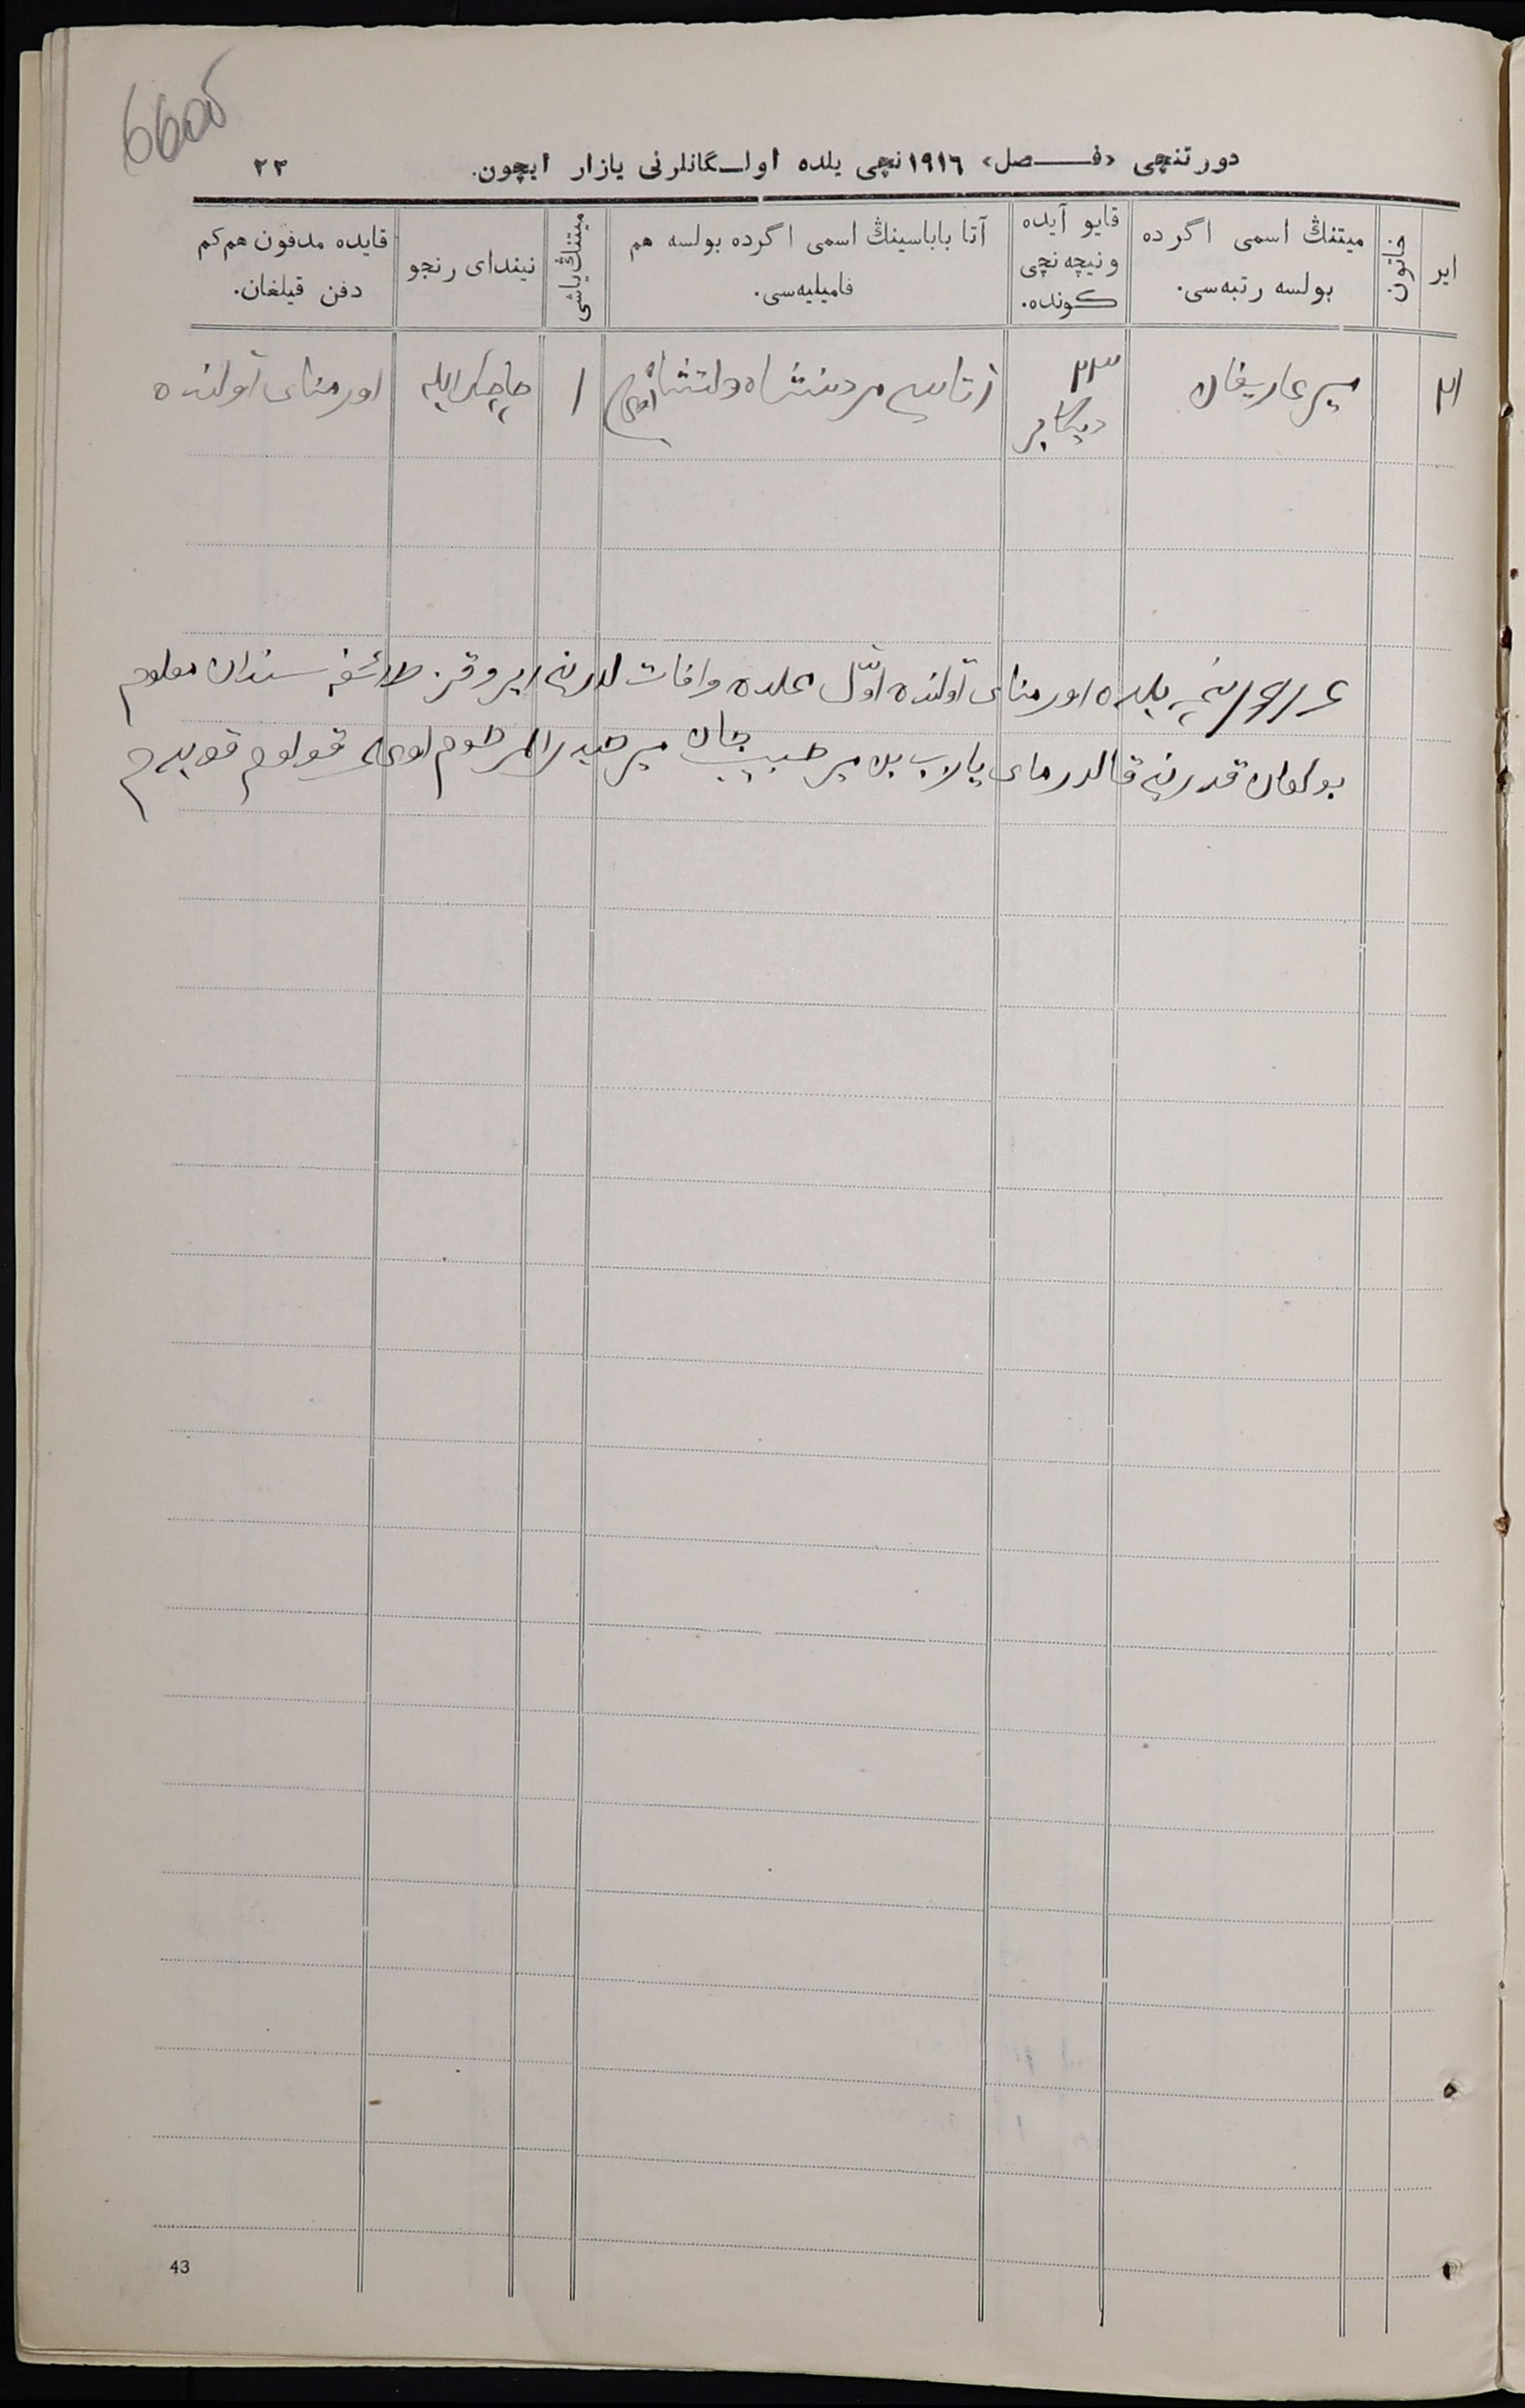 6605
دورتنچی «فصل» ١٩١٦ نچی یلده اولگانلرنی یازار ایچون. ٢٣
ایر
خاتون
میتنڭ اسمی اگرده
بولسه رتبه‌سی.
قایو آیده
ونیچه نچی
کونده.
آتا باباسینڭ اسمی اگرده بولسه هم
فامیلیه‌سی.
میتنڭ یاشی
نیندای رنجو
قایده مدفون هم کم
دفن قیلغان.
٢١ میرعاریفان ٢٣ اتاسی مردنشاه دولتشا اوغلی ١ چاچک ایله اورمنای آولنده
دیکابر
١٩١٦ نچی یلده اورمنای آولنده اوّل محله‌ده وافات لارنی ایر و قز طائفه سندان معلوم
بولغان قدرنی قالدرمای یازب بن میر حبیب خان میر حیدر المرحوم اوغلی قولوم قویدم
43